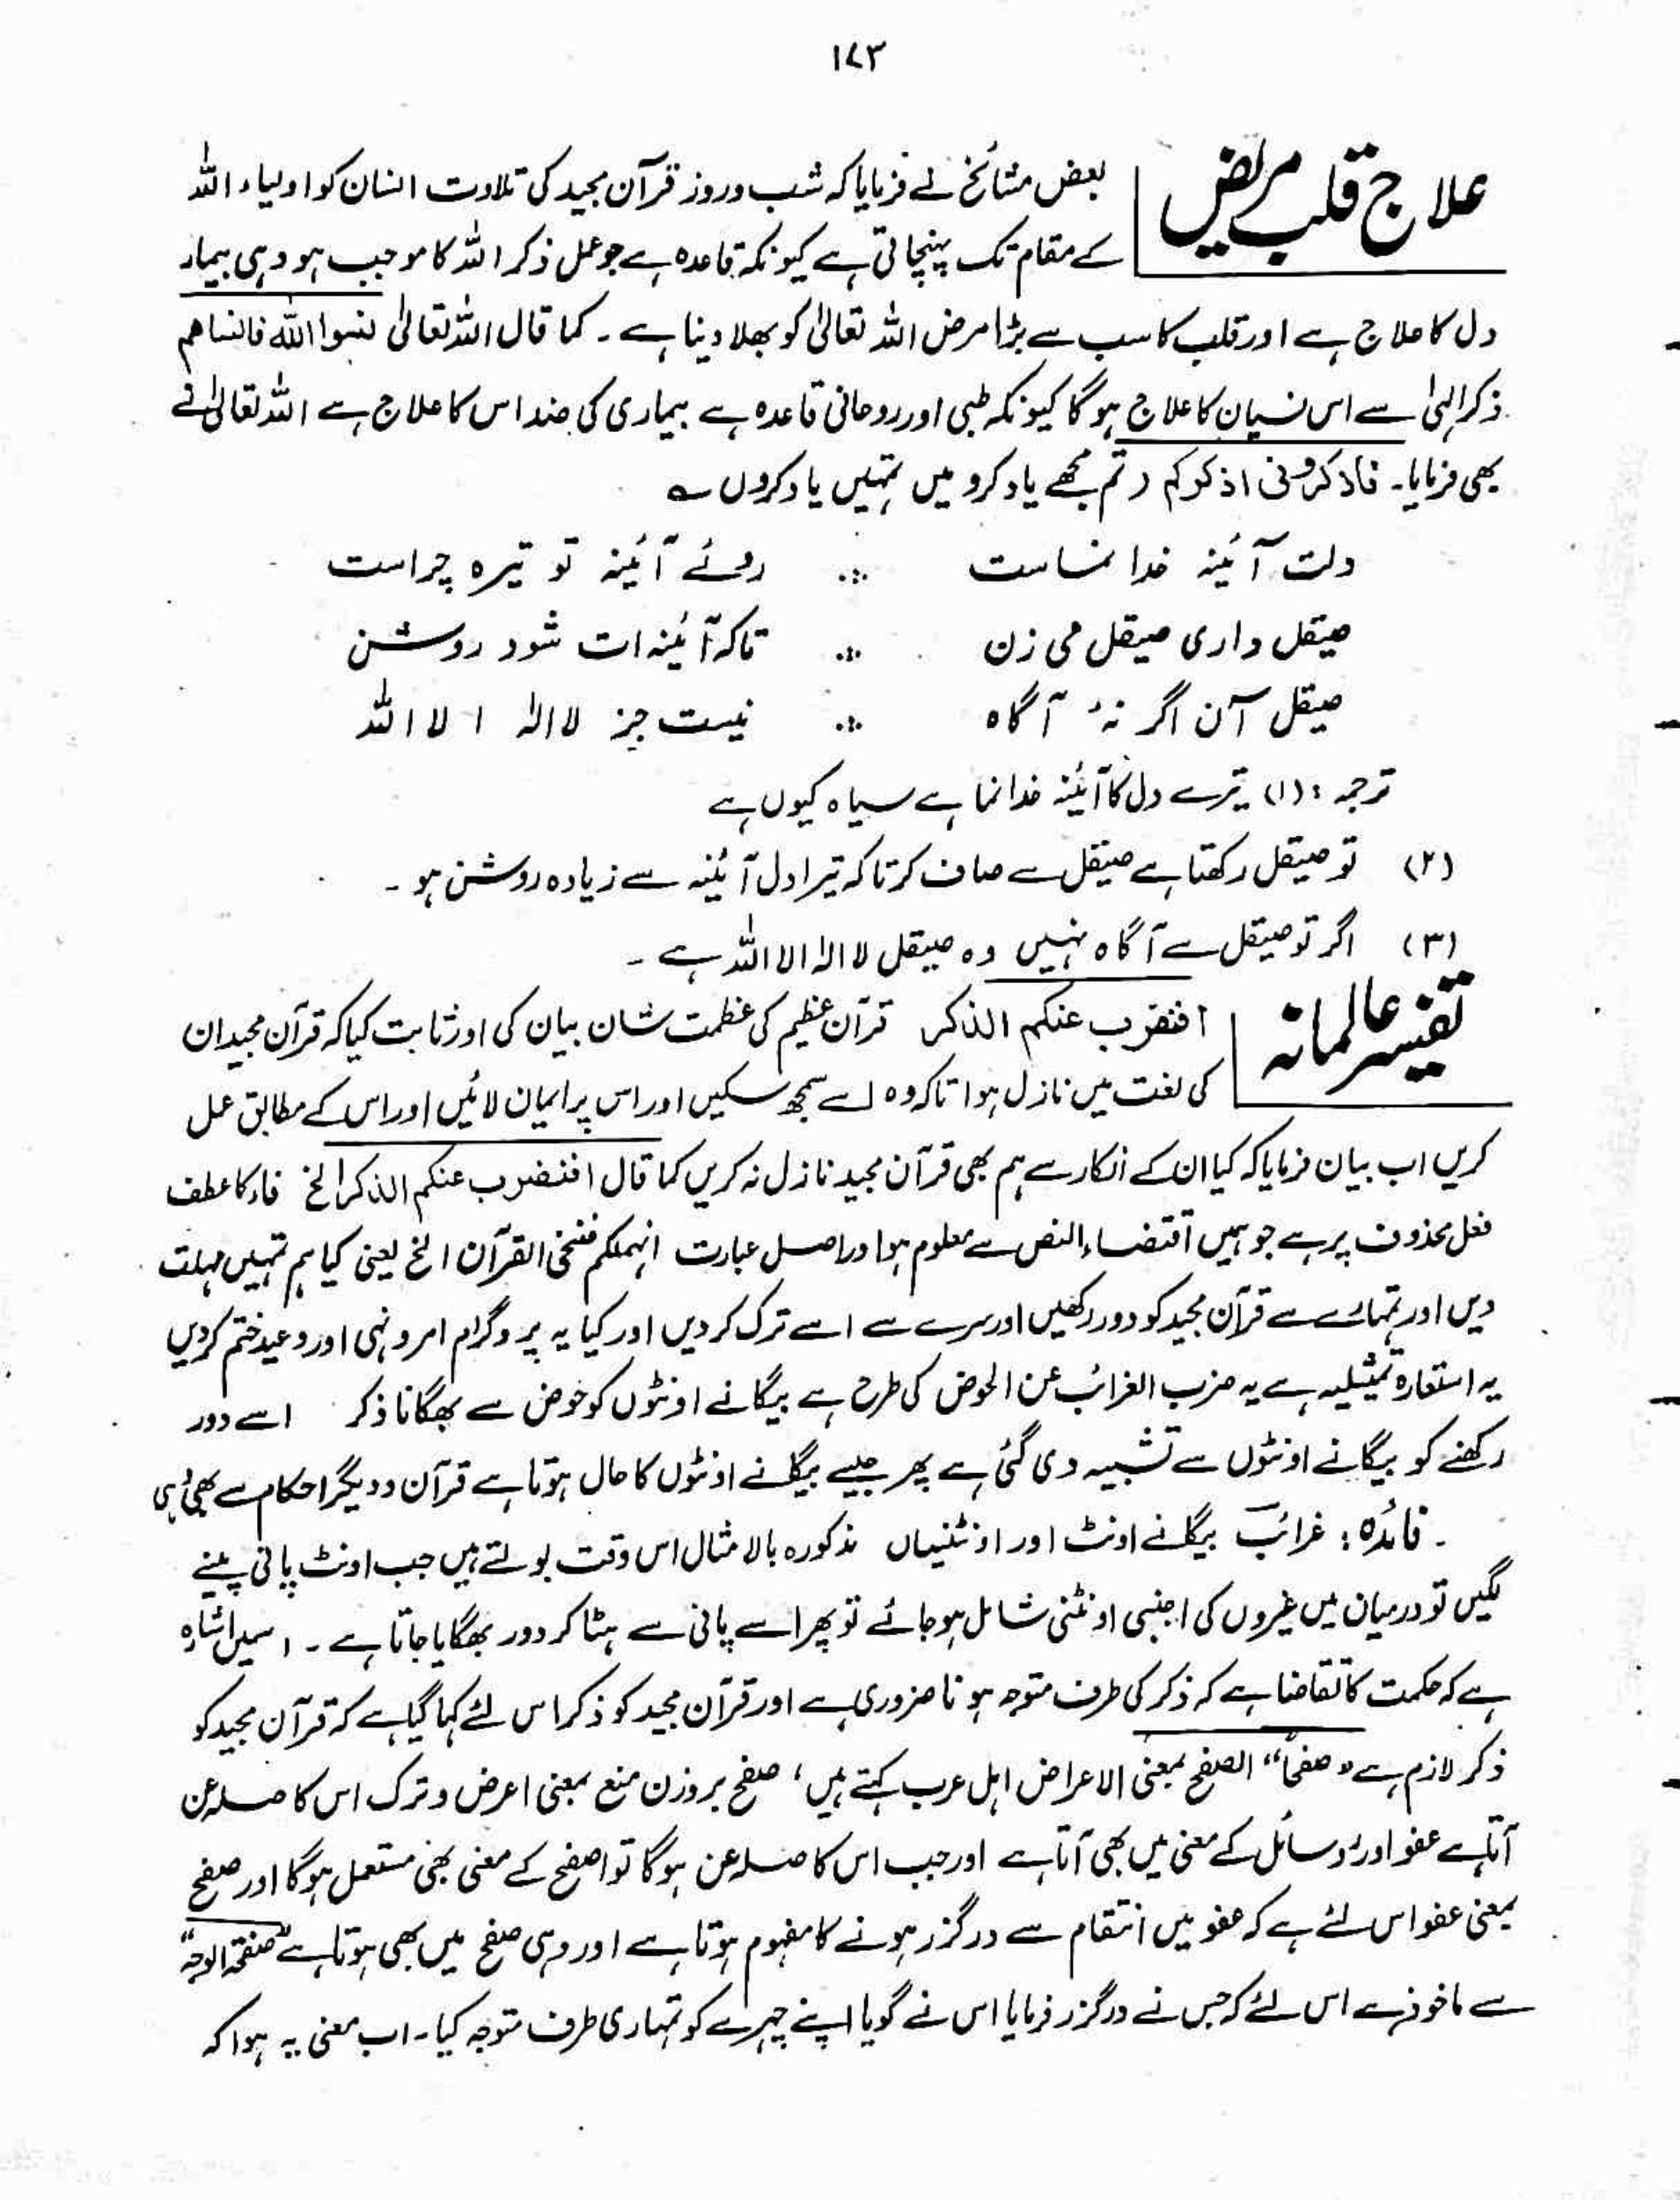 ۱۷۳
علاج قلب مریض
بعض مشائخ نے فرمایا کہ شب و روز قرآن مجید کی تلاوت انسان کو اولیاء اللہ
کے مقام تک پہنچاتی ہے کیونکہ قاعدہ ہے جو عمل ذکر اللہ کا موجب ہو وہی بیمار
دل کا علاج ہے اور قلب کا سب سے بڑا مرض اللہ تعالیٰ کو بھلا دینا ہے ۔ کما قال اللہ تعالیٰ نسوا اللہ فانساھم
ذکر الہیٰ سے اس نسیان کا علاج ہوگا کیونکہ طبی اور روحانی قاعدہ ہے بیماری کی ضد اس کا علاج ہے اللہ تعالیٰ نے
بھی فرمایا۔ فاذکرونی اذکرکم ( تم مجھے یاد کرو میں تمہیں یاد کروں ؎
دلت آئینہ خدا نماست ؞ روئے آئینہ تو تیرہ چراست
صیقل داری صیقل می زن ؞ تاکہ آئینہ ات شود روشن
صیقل آن اگر نۂ آگاہ ؞ نیست جز لا الہ الا اللہ
ترجمہ : (۱) تیرے دل کا آئینہ خدا نما ہے سیاہ کیوں ہے
(۲) تو صیقل رکھتا ہے صیقل سے صاف کر تاکہ تیرا دل آئینہ سے زیادہ روشن ہو ۔
(۳) اگر تو صیقل سے آگاہ نہیں وہ صیقل لا الہ الا اللہ ہے ۔
تفسیر عالمانہ
افنضرب عنکم الذکر قرآن عظیم کی عظمت شان بیان کی اور ثابت کیا کہ قرآن مجید ان
کی لغت میں نازل ہوا تاکہ وہ اسے سمجھ سکیں اور اس پر ایمان لائیں اور اس کے مطابق عمل
کریں اب بیان فرمایا کہ کیا ان کے انکار سے ہم بھی قرآن مجید نازل نہ کریں کما قال افنضرب عنکم الذکر الخ فاء کا عطف
فعل محذوف پر ہے جو ہمیں اقتضاء النص سے معلوم ہوا دراصل عبارت انہملکم فننحی القرآن الخ یعنی کیا ہم تمہیں مہلت
دیں اور تمہارے سے قرآن مجید کو دور رکھیں اور سرے سے اسے ترک کر دیں اور کیا یہ پروگرام امر و نہی اور وعید ختم کر دیں
یہ استعارہ تمثیلیہ ہے یہ ضرب الغرائب عن الحوض کی طرح ہے بیگانے اونٹوں کو حوض سے بھگانا ذکر اسے دور
رکھنے کو بیگانے اونٹوں سے تشبیہ دی گئی ہے پھر جیسے بیگانے اونٹوں کا حال ہوتا ہے قرآن و دیگر احکام سے بھی
۔ فائدہ : غرائب بیگانے اونٹ اور اونٹنیاں مذکورہ بالا مثال اس وقت بولتے ہیں جب اونٹ پانی پینے
لگیں تو درمیان میں غیروں کی اجنبی اونٹنی شامل ہو جائے تو پھر اسے پانی سے ہٹا کر دور بھگایا جاتا ہے ۔ اسمیں اشارہ
ہے کہ حکمت کا تقاضا ہے کہ ذکر کی طرف متوجہ ہونا ضروری ہے اور قرآن مجید کو ذکر اس لئے کہا گیا ہے کہ قرآن مجید کو
ذکر لازم ہے "صفحًا" الصفح بمعنی الاعراض اہل عرب کہتے ہیں ، صفح بروزن منع بمعنی اعرض و ترک اس کا صلہ عن
آتا ہے عفو اور سائل کے معنی میں بھی آتا ہے اور جب اس کا صلہ عن ہوگا تو اصفح کے معنی بھی مستعمل ہوگا اور صفح
بمعنی عفو اس لئے ہے کہ عفو میں انتقام سے درگزر ہونے کا مفہوم ہوتا ہے اور وہی صفح میں بھی ہوتا ہے "صفحۃ الوجہ"
سے ماخوذ ہے اس لئے کہ جس نے درگزر فرمایا اس نے گویا اپنے چہرے کو تمہاری طرف متوجہ کیا۔ اب معنی یہ ہوا کہ